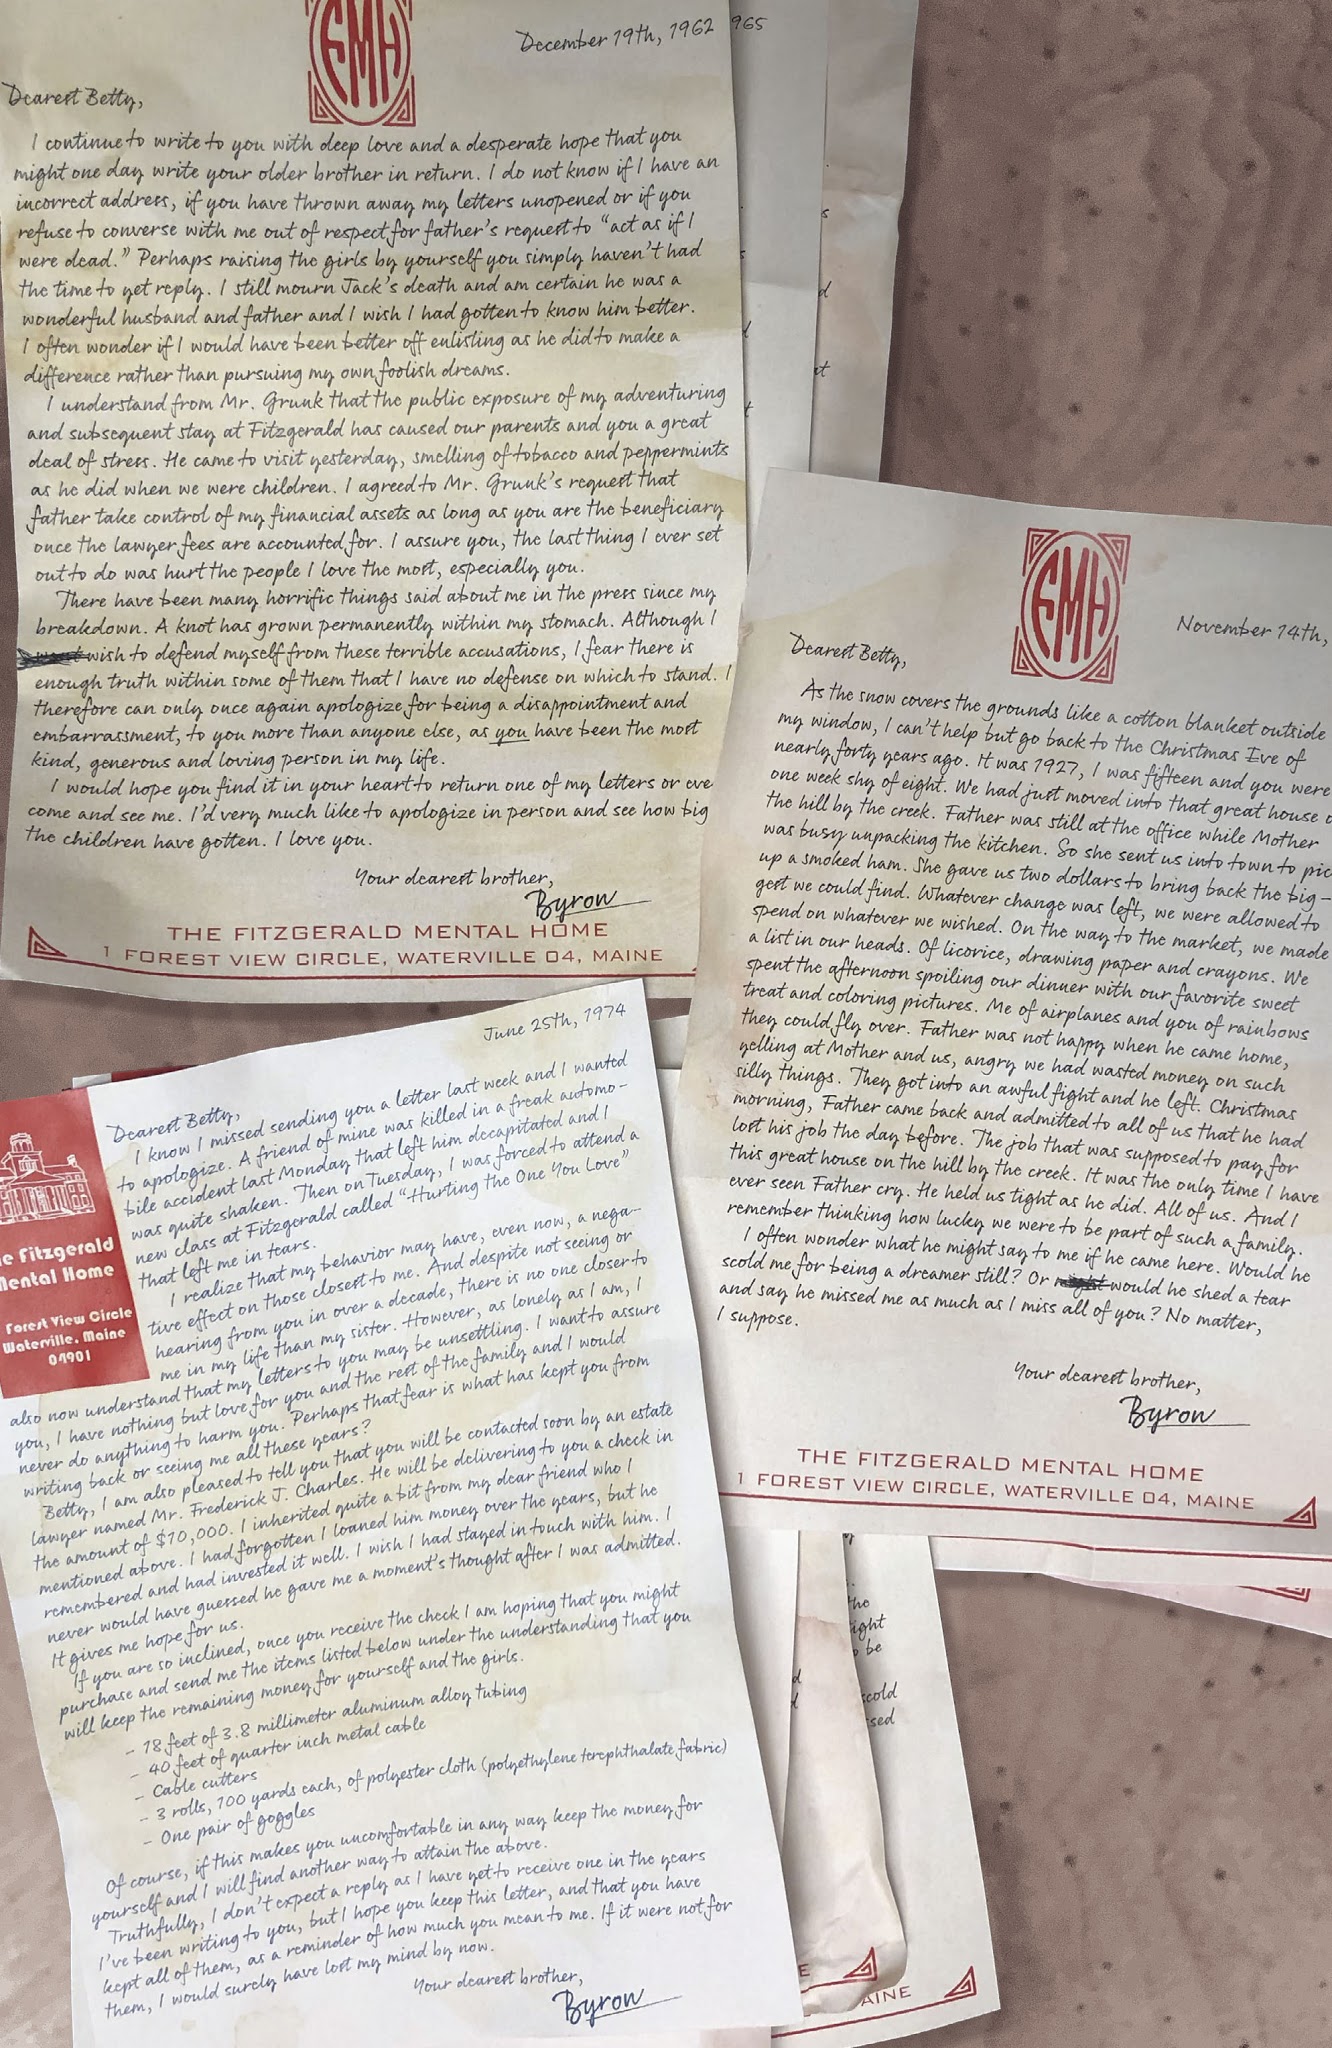 FMH
December 19th, 1962
965
Dearest Betty,
I continue to write to you with deep love and a desperate hope that you
might one day write your older brother in return. I do not know if I have an
incorrect address, if you have thrown away my letters unopened or if you
refuse to converse with me out of respect for father's request to "act as if I
were dead." Perhaps raising the girls by yourself you simply haven't had
the time to yet reply. I still mourn Jack's death and am certain he was a
wonderful husband and father and I wish I had gotten to know him better.
I often wonder if I would have been better off enlisting as he did to make a
difference rather than pursuing my own foolish dreams.
I understand from Mr. Grunk that the public exposure of my adventuring
and subsequent stay at Fitzgerald has caused our parents and you a great
deal of stress. He came to visit yesterday, smelling of tobacco and peppermints
as he did when we were children. I agreed to Mr. Grunk's request that
father take control of my financial assets as long as you are the beneficiary
once the lawyer fees are accounted for. I assure you, the last thing I ever set
out to do was hurt the people I love the most, especially you.
There have been many horrific things said about me in the press since my
breakdown. A knot has grown permanently within my stomach. Although I
wish to defend myself from these terrible accusations, I fear there is
enough truth within some of them that I have no defense on which to stand. I
therefore can only once again apologize for being a disappointment and
embarrassment, to you more than anyone else, as you have been the most
kind, generous and loving person in my life.
I would hope you find it in your heart to return one of my letters or eve
come and see me. I'd very much like to apologize in person and see how big
the children have gotten. I love you.
Your dearest brother,
Byron
THE FITZGERALD MENTAL HOME
1 FOREST VIEW CIRCLE, WATERVILLE 04, MAINE
FMH
November 14th,
Dearest Betty,
As the snow covers the grounds like a cotton blanket outside
my window, I can't help but go back to the Christmas Eve of
nearly forty years ago. It was 1927, I was fifteen and you were
one week shy of eight. We had just moved into that great house o
the hill by the creek. Father was still at the office while Mother
was busy unpacking the kitchen. So she sent us into town to pic
up a smoked ham. She gave us two dollars to bring back the big-
gest we could find. Whatever change was left, we were allowed to
spend on whatever we wished. On the way to the market, we made
a list in our heads. Of licorice, drawing paper and crayons. We
spent the afternoon spoiling our dinner with our favorite sweet
treat and coloring pictures. Me of airplanes and you of rainbows
they could fly over. Father was not happy when he came home,
yelling at Mother and us, angry we had wasted money on such
silly things. They got into an awful fight and he left. Christmas
morning, Father came back and admitted to all of us that he had
lost his job the day before. The job that was supposed to pay for
this great house on the hill by the creek. It was the only time I have
ever seen Father cry. He held us tight as he did. All of us. And I
remember thinking how lucky we were to be part of such a family.
I often wonder what he might say to me if he came here. Would he
scold me for being a dreamer still? Or might would he shed a tear
and say he missed me as much as I miss all of you? No matter,
I suppose.
Your dearest brother,
Byron
THE FITZGERALD MENTAL HOME
1 FOREST VIEW CIRCLE, WATERVILLE 04, MAINE
e Fitzgerald
Mental Home
Forest View Circle
Waterville, Maine
04901
June 25th, 1974
Dearest Betty,
I know I missed sending you a letter last week and I wanted
to apologize. A friend of mine was killed in a freak automo-
bile accident last Monday that left him decapitated and I
was quite shaken. Then on Tuesday, I was forced to attend a
new class at Fitzgerald called "Hurting the One You Love"
that left me in tears.
I realize that my behavior may have, even now, a nega-
tive effect on those closest to me. And despite not seeing or
hearing from you in over a decade, there is no one closer to
me in my life than my sister. However, as lonely as I am, I
also now understand that my letters to you may be unsettling. I want to assure
you, I have nothing but love for you and the rest of the family and I would
never do anything to harm you. Perhaps that fear is what has kept you from
writing back or seeing me all these years?
Betty, I am also pleased to tell you that you will be contacted soon by an estate
lawyer named Mr. Frederick J. Charles. He will be delivering to you a check in
the amount of $10,000. I inherited quite a bit from my dear friend who I
mentioned above. I had forgotten I loaned him money over the years, but he
remembered and had invested it well. I wish I had stayed in touch with him. I
never would have guessed he gave me a moment's thought after I was admitted.
It gives me hope for us.
If you are so inclined, once you receive the check I am hoping that you might
purchase and send me the items listed below under the understanding that you
will keep the remaining money for yourself and the girls.
- 18 feet of 3.8 millimeter aluminum alloy tubing
- 40 feet of quarter inch metal cable
- Cable cutters
- 3 rolls, 100 yards each, of polyester cloth (polyethylene terephthalate fabric)
- One pair of goggles
Of course, if this makes you uncomfortable in any way keep the money for
yourself and I will find another way to attain the above.
Truthfully, I don't expect a reply as I have yet to receive one in the years
I've been writing to you, but I hope you keep this letter, and that you have
kept all of them, as a reminder of how much you mean to me. If it were not for
them, I would surely have lost my mind by now.
Your dearest brother,
Byron
he
ight
o be
scold
sed
E
AINE